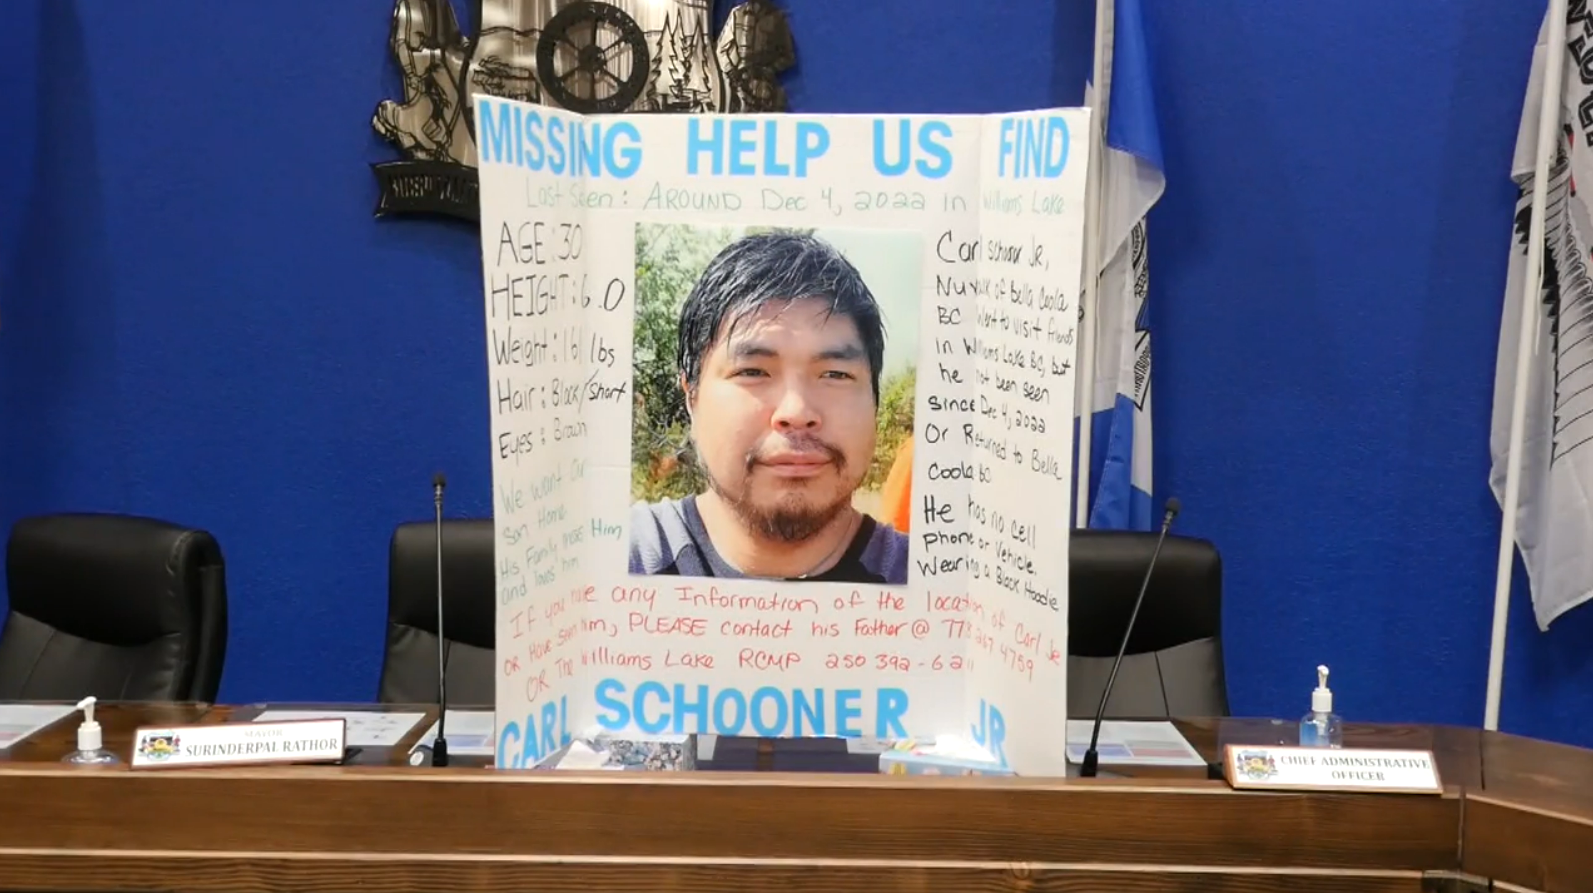 MISSING HELP US FIND
Last Seen: AROUND Dec 4, 2022 in Williams Lake
AGE: 30
HEIGHT: 6.0
Weight: 161 lbs
Hair: Black/short
Eyes: Brown
We want our
Son Home
His Family miss Him
and loves him
Carl Schooner JR,
of bella Coola
BC Went to visit friends
in Williams Lake BC, but
he not been seen
since Dec 4, 2022
Or Returned to Bella
Coola bc
He has no cell
phone or Vehicle.
Wearing a Black Hoodie
If you have any Information of the location of Carl Jr
OR Have seen him, PLEASE contact his Father @ 778 267 4759
OR The Williams Lake RCMP 250 392-6211
CARL SCHOONER JR
MAYOR
SURINDERPAL RATHOR
CHIEF ADMINISTRATIVE
OFFICER